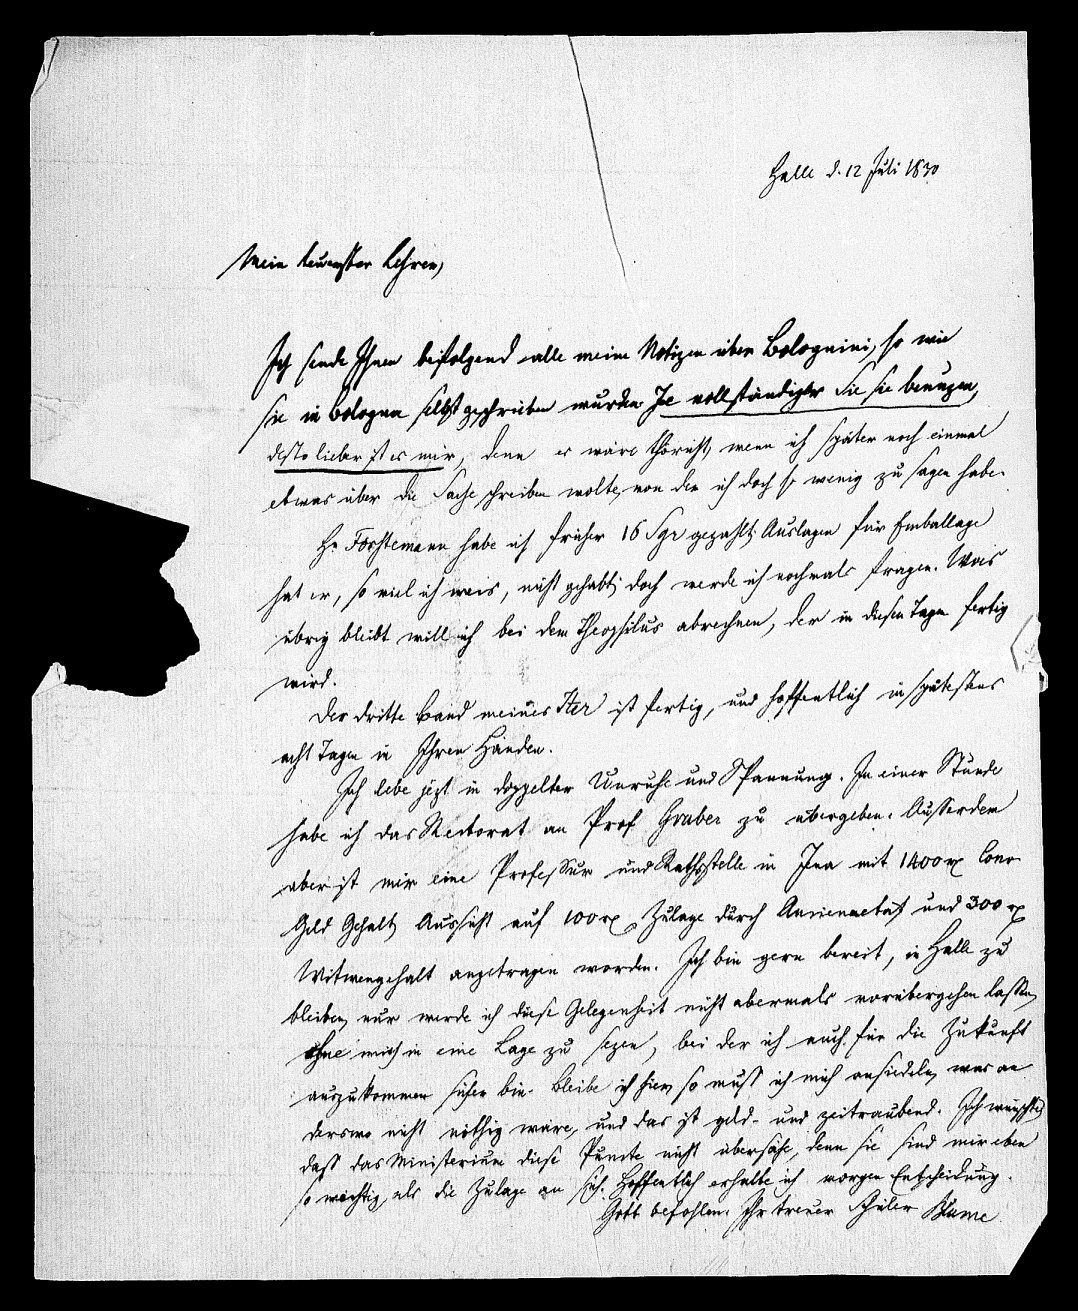 Halle d. 12 Juli 1830
Mein theuerster Lehrer,
Ich sende Ihnen beifolgend alle meine Notizen über Bolognini, so wie
sie in Bologna selbst geschrieben wurden. Je vollständiger Sie sie benuzen,
desto lieber ist es mir, denn es wäre thöricht, wenn ich später noch einmal
etwas über die Sache schreiben wollte, von der ich doch so wenig zu sagen habe.
Hr Förstemann habe ich früher 16 Sgr gezahlt; Auslagen für Emballage
hat er, so viel ich weis, nicht gehabt; doch werde ich nochmals fragen. Was
übrig bleibt will ich bei dem Theophilus abrechnen, der in diesen Tagen fertig
wird.
Der dritte Band meines Iter ist fertig, und hoffentlich in spätestens
acht Tagen in Ihren Händen.
Ich lebe jezt in doppelter Unruhe und Spannung. In einer Stunde
habe ich das Rectorat an Prof Gruber zu übergeben. Ausserdem
aber ist mir eine Professur und Rathsstelle in Jena mit 1400 rx Conv
Geld Gehalt, Aussicht auf 100 rx Zulage durch Anciennetät und 300 rx
Witwengehalt angetragen worden. Ich bin gern bereit, in Halle zu
bleiben, nur werde ich diese Gelegenheit nicht abermals vorübergehen lassen,
ohne mich in eine Lage zu sezen, bei der ich auch für die Zukunft
auszukommen sicher bin. Bleibe ich hier, so muß ich mich ansiedeln, was an
derswo nicht nöthig wäre, und das ist geld- und zeitraubend. Ich wünschte,
daß das Ministerium diese Puncte nicht übersähe, denn sie sind mir eben
so wichtig, als die Zulage an sich. Hoffentlich erhalte ich morgen Entscheidung.
Gott befohlen. Ihr treuer Schüler Blume